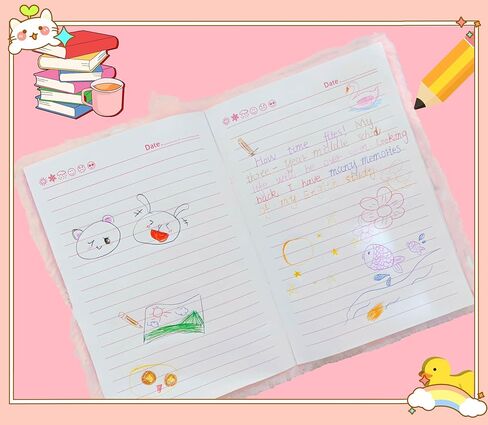 Date
Date
How time flies! My
three-year middle school
life will be over. Looking
back, I have many memories
of my English study